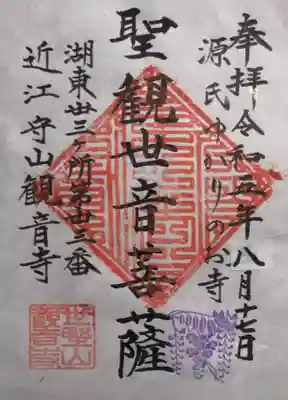 奉拝令和五年八月十七日
源氏ゆかりのお寺
聖観世音菩薩
湖東卅三ヶ所第廿三番
近江守山観音寺